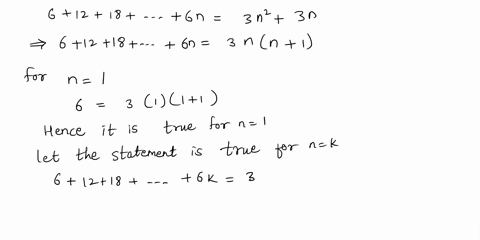 6+12+18+ ---- +6n = 3n² + 3n
⇒ 6+12+18+--- + 6n = 3 n (n+1)
for n = 1
6 = 3 (1) (1+1)
Hence it is true for n=1
let the statement is true for n=k
6+12+18+ ---- +6k = 3